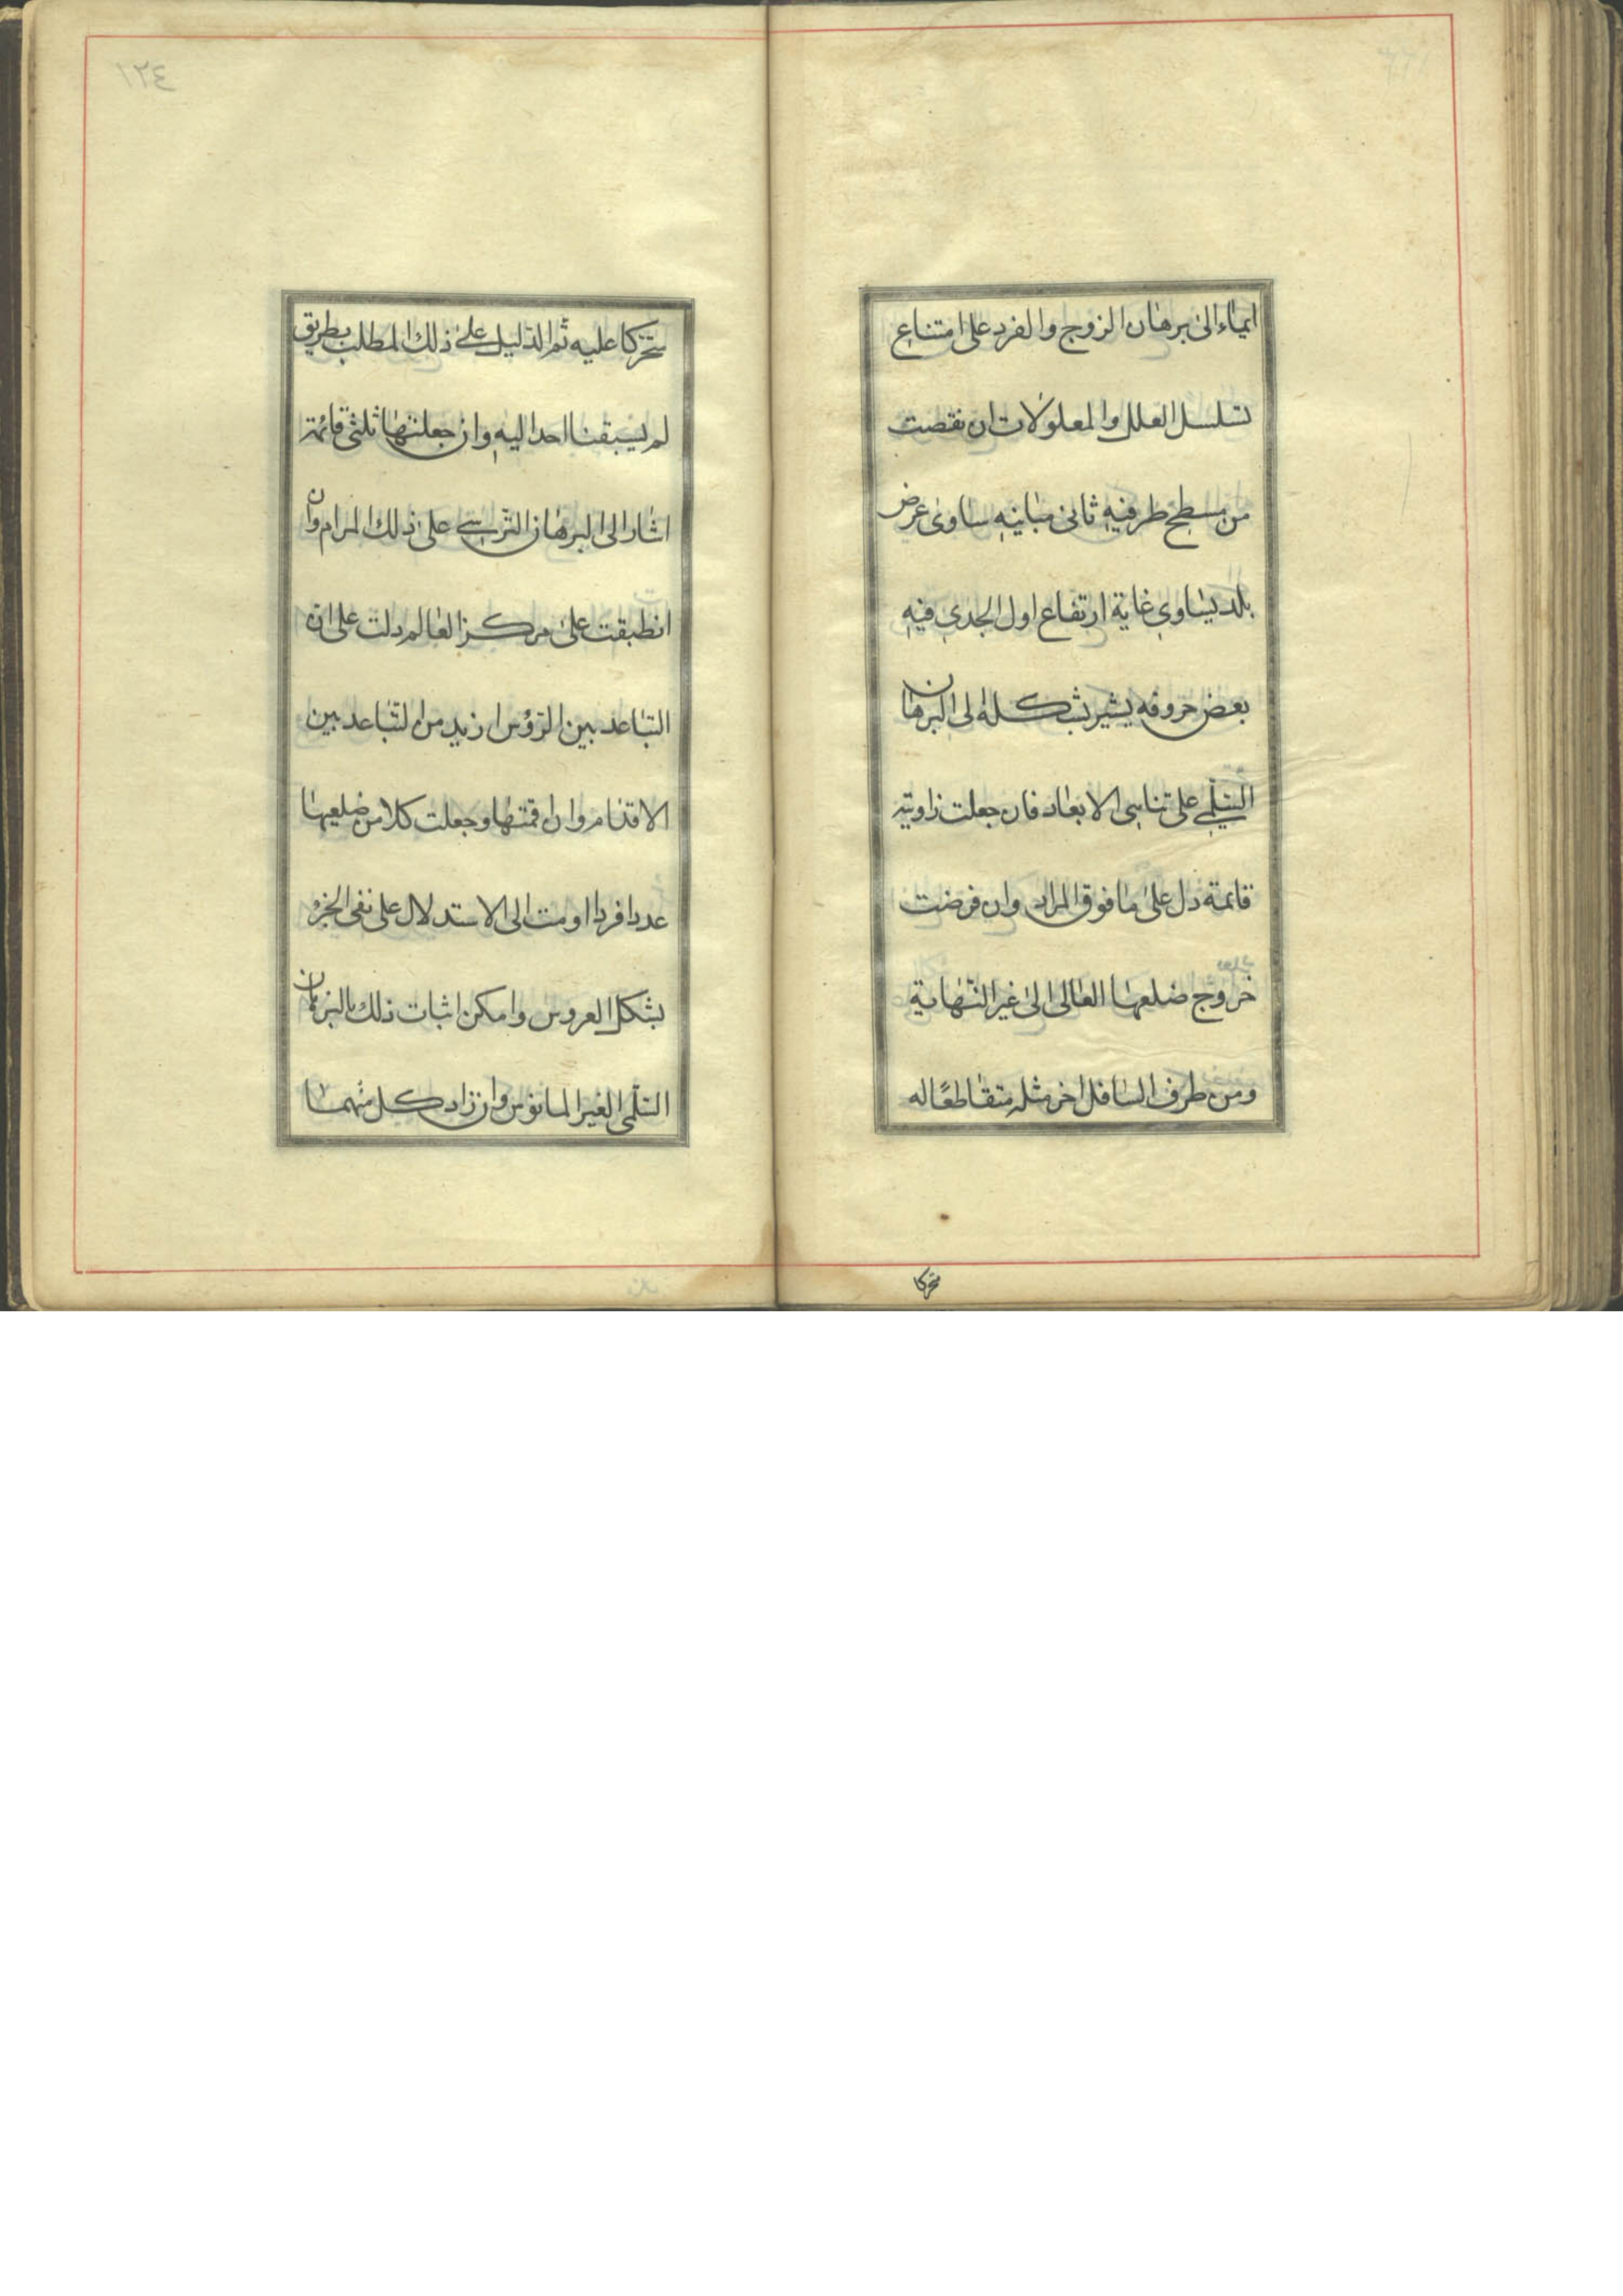 ايماء الى برهان الزوج والفرد على امتناع
تسلسل العلل والمعلولات ان نقصت
من مسطح طرفيه ثانى مبانيه ساوى عرض
بلد يساوى غاية ارتفاع اول الجدى فيه
بعض حروفه يشير بشكله الى البرهان
السلمى على تناهى الابعاد فان جعلت زاويته
قائمة دل على ما فوق المراد وان فرضت
خروج ضلعها العالى الى غير النهاية
ومن طرف السافل اخر مثله متقاطعا له
متحركا
١٢٤
متحركا عليه ثم الدليل على ذلك المطلب بطريق
لم يسبقنا احد اليه وان جعلتها ثلثى قائمة
اشار الى البرهان الترسى على ذلك المرام وان
انطبقت على مركز العالم دلت على ان
التباعد بين الرؤس ازيد من التباعد بين
الاقدام وان اقمتها وجعلت كلا من ضلعيها
عددا فردا اومت الى الاستدلال على نفى الجزء
بشكل العروس وامكن اثبات ذلك بالبرهان
السلمى الغير المانوس وان زاد كل منهما